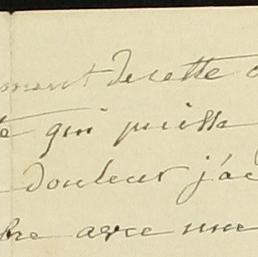 ment de cette
qui puisse
douleur j'ac
bre avec une